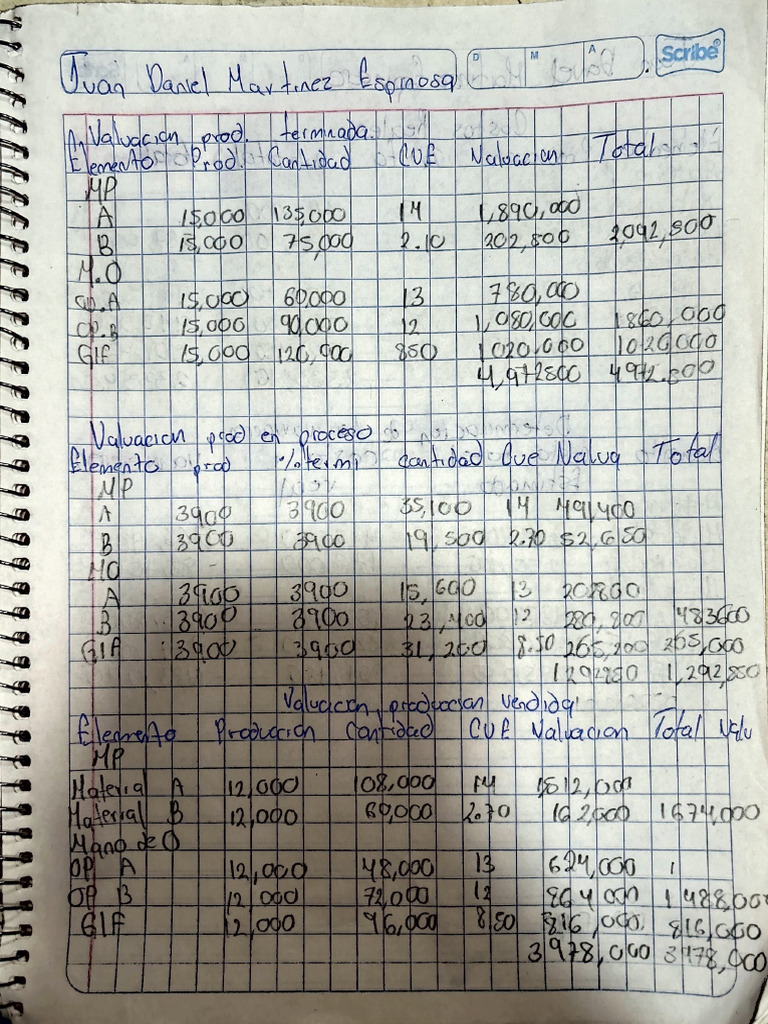 Juan Daniel Martinez Espinosa
D M A
Scribe
A. Valuacion prod. terminada.
Elemento Prod. Cantidad CUE Valuacion Total
MP
A 15,000 135,000 14 1,890,000
B 15,000 75,000 2.10 202,500 2,092,500
M.O
OP.A 15,000 60,000 13 780,000
OP.B 15,000 90,000 12 1,080,000 1860,000
GIF 15,000 120,000 850 1020,000 1020,000
4,972500 4972.500
Valuacion prod en proceso
Elemento prod % termi cantidad Cue Valua Total
MP
A 3900 3900 35,100 14 491,400
B 3900 3900 19,500 2.70 52,650
MO
A 3900 3900 15,600 13 202800
B 3900 3900 23,400 12 280,800 483600
GIF 3900 3900 31,200 8.50 265,200 265,000
1292850 1,292,850
Valuacion produccion vendida
Elemento Produccion Cantidad CUE Valuacion Total Valu
MP
Material A 12,000 108,000 14 1512,000
Material B 12,000 60,000 2.70 162,000 1674,000
Mano de O
OP A 12,000 48,000 13 624,000
OP B 12,000 72,000 12 864,000 1488,000
GIF 12,000 96,000 8,50 816,000. 816,000
3978,000 3978,000